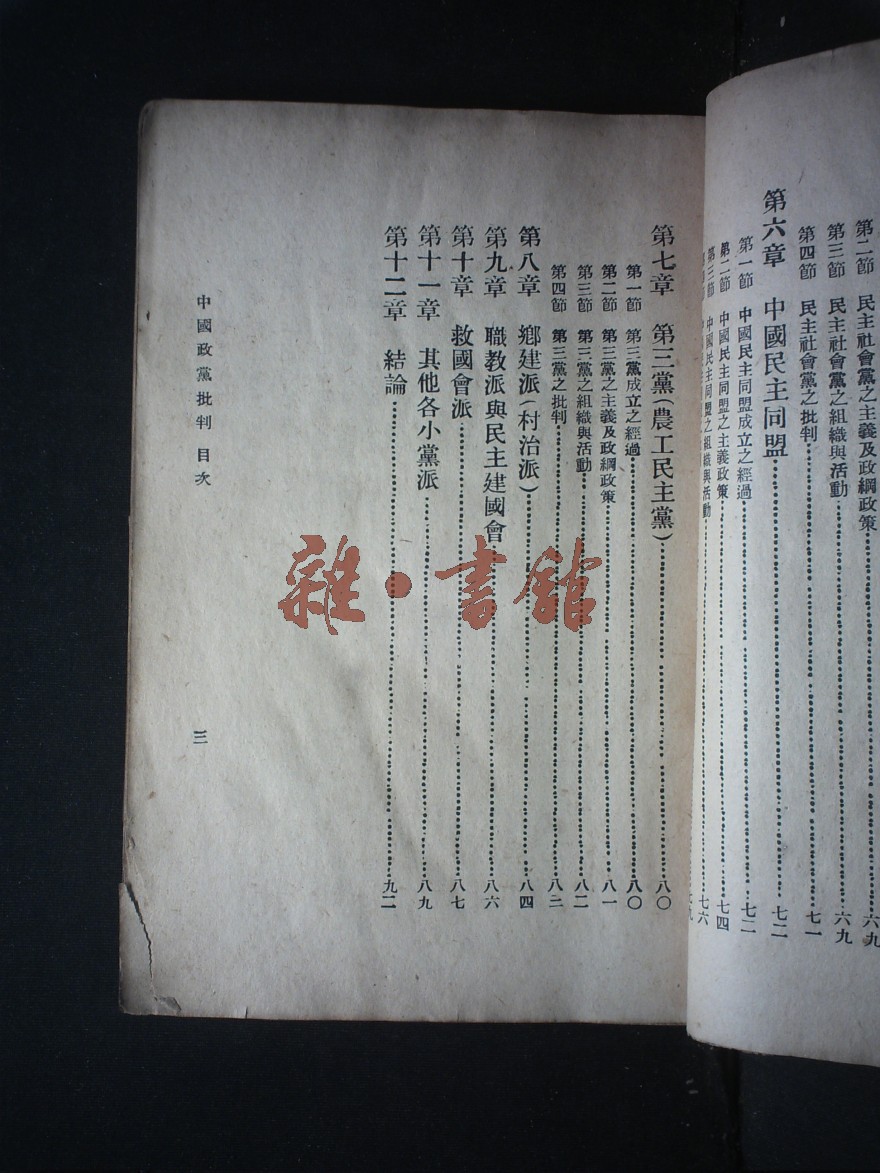 第二節 民主社會黨之主義及政綱政策……六九
第三節 民主社會黨之組織與活動……六九
第四節 民主社會黨之批判……七一
第六章 中國民主同盟……七二
第一節 中國民主同盟成立之經過……七二
第二節 中國民主同盟之主義政策……七四
第三節 中國民主同盟之組織與活動……七六
第七章 第三黨(農工民主黨)……八〇
第一節 第三黨成立之經過……八〇
第二節 第三黨之主義及政綱政策……八一
第三節 第三黨之組織與活動……八二
第四節 第三黨之批判……八三
第八章 鄉建派(村治派)……八四
第九章 職教派與民主建國會……八六
第十章 救國會派……八七
第十一章 其他各小黨派……八九
第十二章 結論……九二
中國政黨批判 目次
三
雜·書館